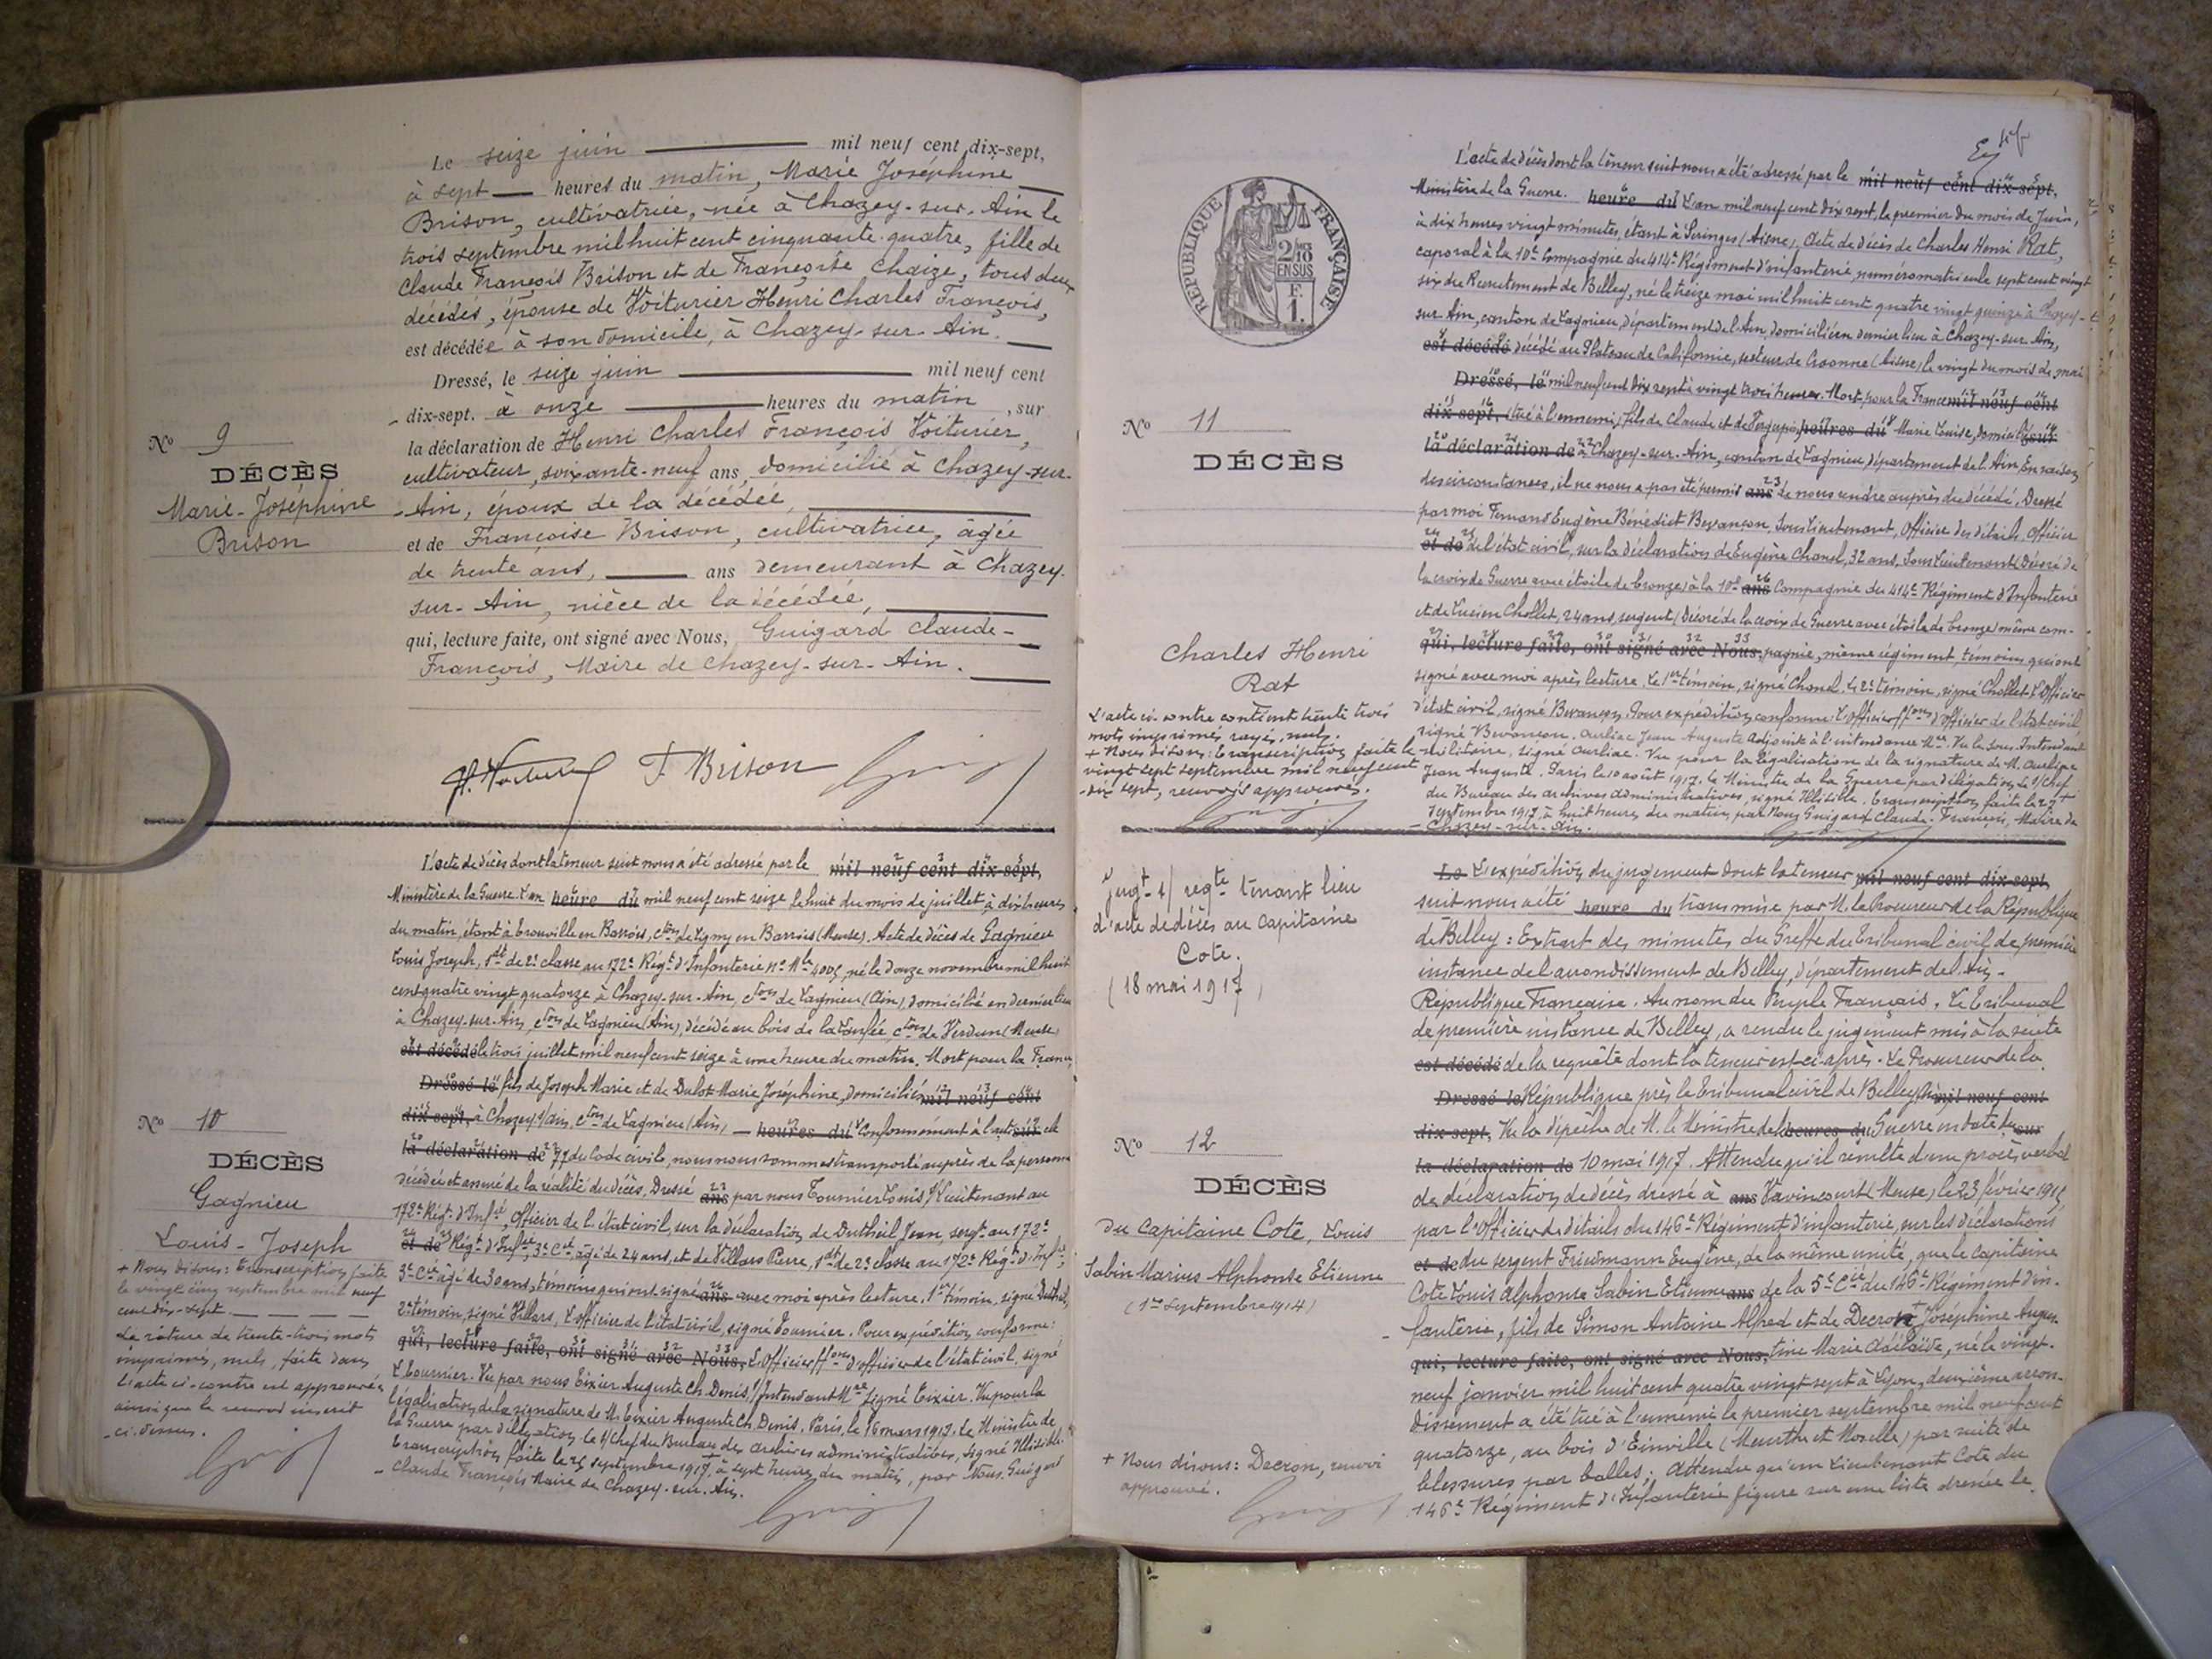 Le seize juin mil neuf cent dix-sept,
à sept heures du matin, Marie Joséphine
Brison, cultivatrice, née à Chazey-sur-Ain le
trois septembre mil huit cent cinquante-quatre, fille de
Claude François Brison et de Françoise Chaize, tous deux
décédés, épouse de Voiturier Henri Charles François,
est décédée à son domicile, à Chazey-sur-Ain.
Dressé, le seize juin mil neuf cent
dix-sept. à onze heures du matin, sur
la déclaration de Henri Charles François Voiturier,
cultivateur, soixante-neuf ans, domicilié à Chazey-sur-
-Ain, époux de la décédée,
et de Françoise Brison, cultivatrice, âgée
de trente ans, ans demeurant à Chazey-
sur-Ain, nièce de la décédée,
qui, lecture faite, ont signé avec Nous, Guigard Claude-
François, Maire de Chazey-sur-Ain.
No 9
DÉCÈS
Marie-Joséphine
Brison
F. Brison
L'acte de décès dont la teneur suit nous a été adressé par le mil neuf cent dix-sept,
Ministère de la Guerre. L'an heure du mil neuf cent seize le huit du mois de juillet à dix heures
du matin, étant à Trouville en Barrois, cton de Ligny en Barrois (Meuse). Acte de décès de Gagnieu
Louis Joseph, sdt de 2e classe au 172e Régt d'Infanterie No Mle 4005, né le douze novembre mil huit
cent quatre vingt quatorze à Chazey-sur-Ain, cton de Lagnieu (Ain), domicilié en dernier lieu
à Chazey-sur-Ain, cton de Lagnieu (Ain), décédé au bois de la Laufée, cton de Verdun (Meuse)
est décédé le trois juillet mil neuf cent seize à une heure du matin. Mort pour la France,
Dressé le fils de Joseph Marie et de Dulot Marie Joséphine, domiciliés mil neuf cent
dix-sept, à Chazey s/Ain, cton de Lagnieu (Ain), heures du Conformément à l'art sur cle
la déclaration de 77 du Code civil, nous nous sommes transporté auprès de la personne
décédée et assuré de la réalité du décès. Dressé ans par nous Tournier Louis, s/Lieutenant au
172e Régt d'Infie, Officier de l'état civil, sur la déclaration de Dutheil Jean, sergt au 172e
et de Régt d'Infie, 3e Cie, âgé de 24 ans, et de Villars Pierre, sdt de 2e classe au 172e Régt d'Infie,
3e Cie âgé de 30 ans, témoins qui ont signé ans avec moi après lecture. 1er témoin, signé Dutheil,
2e témoin, signé Villars, L'officier de l'état civil, signé Tournier. Pour expédition conforme:
qui, lecture faite, ont signé avec Nous, L'Officier ffons d'officier de l'état civil, signé
L Tournier. Vu par nous Eixier Auguste Ch. Denis, s/Intendant Mre signé Eixier. Vu pour la
légalisation de la signature de M. Eixier Auguste Ch. Denis. Paris, le 16 mars 1917. Le Ministre de
la Guerre par délégation le s/chef du Bureau des archives administratives, signé Illisible.
Transcription faite le 25 septembre 1917, + à sept heures du matin, par Nous Guigard
Claude François Maire de Chazey-sur-Ain.
No 10
DÉCÈS
Gagnieu
Louis-Joseph
+ Nous disons: transcription faite
le vingt cinq septembre mil neuf
cent dix-sept.
La rature de trente-trois mots
imprimés, nuls, faite dans
l'acte ci-contre est approuvée
ainsi que le renvoi inscrit
-ci-dessus.
RÉPUBLIQUE FRANÇAISE
2/10 EN SUS
F. 1.
L'acte de décès dont la teneur suit nous a été adressé par le mil neuf cent dix-sept,
Ministère de la Guerre. heure du L'an mil neuf cent dix sept, le premier du mois de Juin,
à dix heures vingt minutes, étant à Seringes (Aisne), Acte de décès de Charles Henri Rat,
caporal à la 10e Compagnie du 414e Régiment d'infanterie, numéro matricule sept cent vingt
six du Recrutement de Belley, né le treize mai mil huit cent quatre vingt quinze à Chazey-
sur Ain, canton de Lagnieu, département de l'Ain, domicilié en dernier lieu à Chazey-sur-Ain,
est décédé décédé au Plateau de Californie, secteur de Craonne (Aisne) le vingt du mois de mai
Dressé, le mil neuf cent dix sept à vingt trois heures. Mort pour la France mil neuf cent
dix sept, (tué à l'ennemi) fils de Claude et de heures du Marie Louise, domiciliés sur
la déclaration de à Chazey-sur-Ain, canton de Lagnieu, département de l'Ain. En raison
des circonstances, il ne nous a pas été permis ans de nous rendre auprès du décédé. Dressé
par moi Fernand Eugène Bénédict Bevançon, Sous Lieutenant, Officier des détails, Officier
et de de l'état civil, sur la déclaration de Eugène Chanel, 32 ans, Sous Lieutenant (Décoré de
la croix de Guerre avec étoile de bronze) à la 10e ans Compagnie du 414e Régiment d'Infanterie
et de Lucien Chollet, 24 ans, sergent (décoré de la croix de Guerre avec étoile de bronze) même com-
qui, lecture faite, ont signé avec Nous, pagnie, même régiment, témoins qui ont
signé avec moi après lecture. Le 1er témoin, signé Chanel. Le 2e témoin, signé Chollet. L'Officier
d'état civil, signé Bevançon. Pour expédition conforme: L'officier ffons d'officier de l'état civil,
signé Bevançon. Aurliac Jean Auguste Adjoint à l'intendance Mre. Vu le Sous Intendant
militaire, signé Aurliac. Vu pour la légalisation de la signature de M. Aurliac
Jean Auguste. Paris le 10 août 1917. le Ministre de la Guerre par délégation, Le s/chef
du Bureau des archives administratives, signé Illisible. Transcription faite le 27 +
septembre 1917, à huit heures du matin, par Nous Guigard Claude-François, Maire de
Chazey-sur-Ain.
No 11
DÉCÈS
Charles Henri
Rat
L'acte ci-contre contient trente trois
mots imprimés rayés, nuls.
+ Nous disons: Transcription faite le
vingt sept septembre mil neuf cent
-dix sept, renvois approuvés.
Le L'expédition du jugement dont la teneur mil neuf cent dix-sept,
suit nous a été heure du transmise par M. le Procureur de la République
de Belley: Extrait des minutes du Greffe du Tribunal civil de première
instance de l'arrondissement de Belley, département de l'Ain-
République Française. Au nom du Peuple Français. Le Tribunal
de première instance de Belley, a rendu le jugement mis à la suite
est décédé de la requête dont la teneur est ci-après. Le Procureur de la
Dressé le République près le Tribunal civil de Belley, mil neuf cent
dix-sept, Vu la dépêche de M. le Ministre de la heures du Guerre en date du sur
la déclaration de 10 mai 1917. Attendu qu'il résulte d'un procès, verbal
de déclaration de décès dressé à ans Vavincourt (Meuse) le 23 février 1915
par l'Officier de détails du 146e Régiment d'infanterie, sur les déclarations
et de du sergent Friedmann Eugène, de la même unité, que le capitaine
Cote Louis Alphonse Sabin Etienne ans de la 5e Cie du 146e Régiment d'in-
fanterie, fils de Simon Antoine Alfred et de Decron + Joséphine Augus-
qui, lecture faite, ont signé avec Nous, tine Marie Adélaïde, né le vingt-
neuf janvier mil huit cent quatre vingt sept à Lyon, deuxième arron-
dissement a été tué à l'ennemi le premier septembre mil neuf cent
quatorze, au bois d'Einville (Meurthe et Moselle) par suite de
blessures par balles; Attendu qu'un Lieutenant Cote du
146e Régiment d'Infanterie figure sur une liste dressée le
jugt s/ reqte tenant lieu
d'acte de décès au Capitaine
Cote.
(18 mai 1917)
No 12
DÉCÈS
du Capitaine Cote, Louis
Sabin Marius Alphonse Etienne
(1er septembre 1914)
+ Nous disons: Decron, renvoi
approuvé.